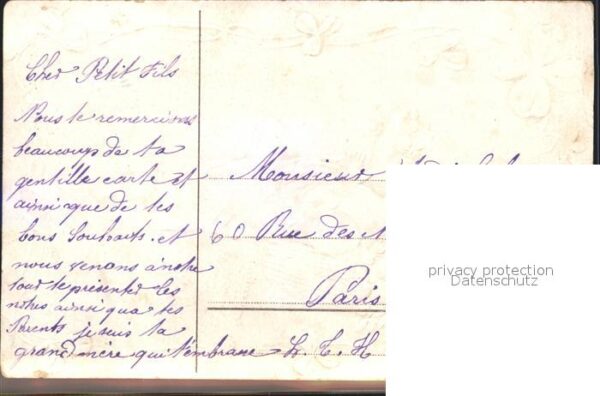 Cher Petit Fils
Nous te remercions
beaucoup de ta
gentille carte et
ainsi que de tes
bons Souhaits. et
nous venons à notre
tour te présenter les
notres ainsi qua tes
Parents je suis la
grand mère qui t'embrasse L. T. H
Monsieur
60 Rue des
Paris
privacy protection
Datenschutz